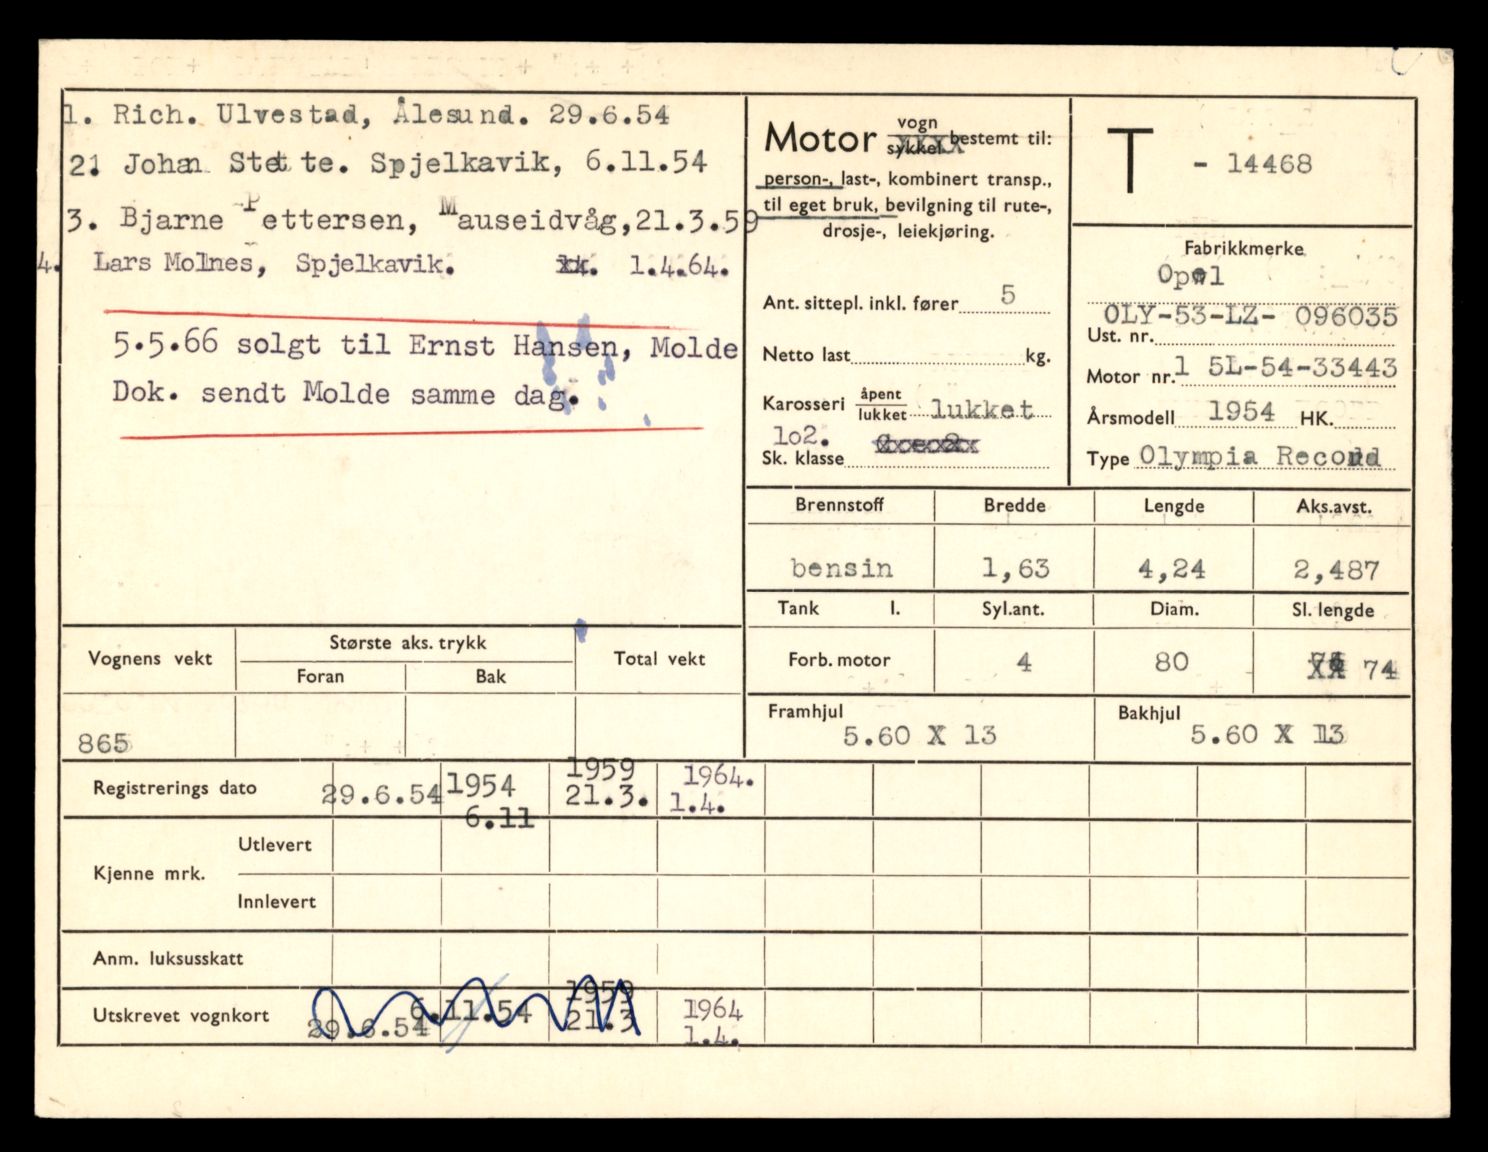 1. Rich. Ulvestad, Ålesund. 29.6.54
2. Johan Stette. Spjelkavik, 6.11.54
3. Bjarne Pettersen, Mauseidvåg, 21.3.59
4. Lars Molnes, Spjelkavik. 1.4.64.
5.5.66 solgt til Ernst Hansen, Molde
Dok. sendt Molde samme dag.
Motor vogn sykkel bestemt til:
person-, last-, kombinert transp.,
til eget bruk, bevilgning til rute-,
drosje-, leiekjøring.
Ant. sittepl. inkl. fører 5
Netto last kg.
Karosseri åpent lukket lukket
102.
Sk. klasse
T - 14468
Fabrikkmerke
Opel
OLY-53-LZ- 096035
Ust. nr.
Motor nr. 1 5L-54-33443
Årsmodell 1954 HK.
Type Olympia Record
Brennstoff Bredde Lengde Aks.avst.
bensin 1,63 4,24 2,487
Tank l. Syl.ant. Diam. Sl. lengde
Forb. motor 4 80 74
Framhjul Bakhjul
5.60 X 13 5.60 X 13
Vognens vekt Største aks. trykk Total vekt
Foran Bak
865
Registrerings dato 29.6.54 1954 6.11 1959 21.3. 1964. 1.4.
Kjenne mrk. Utlevert
Innlevert
Anm. luksusskatt
Utskrevet vognkort 29.6.54 6.11.54 1959 21.3 1964 1.4.